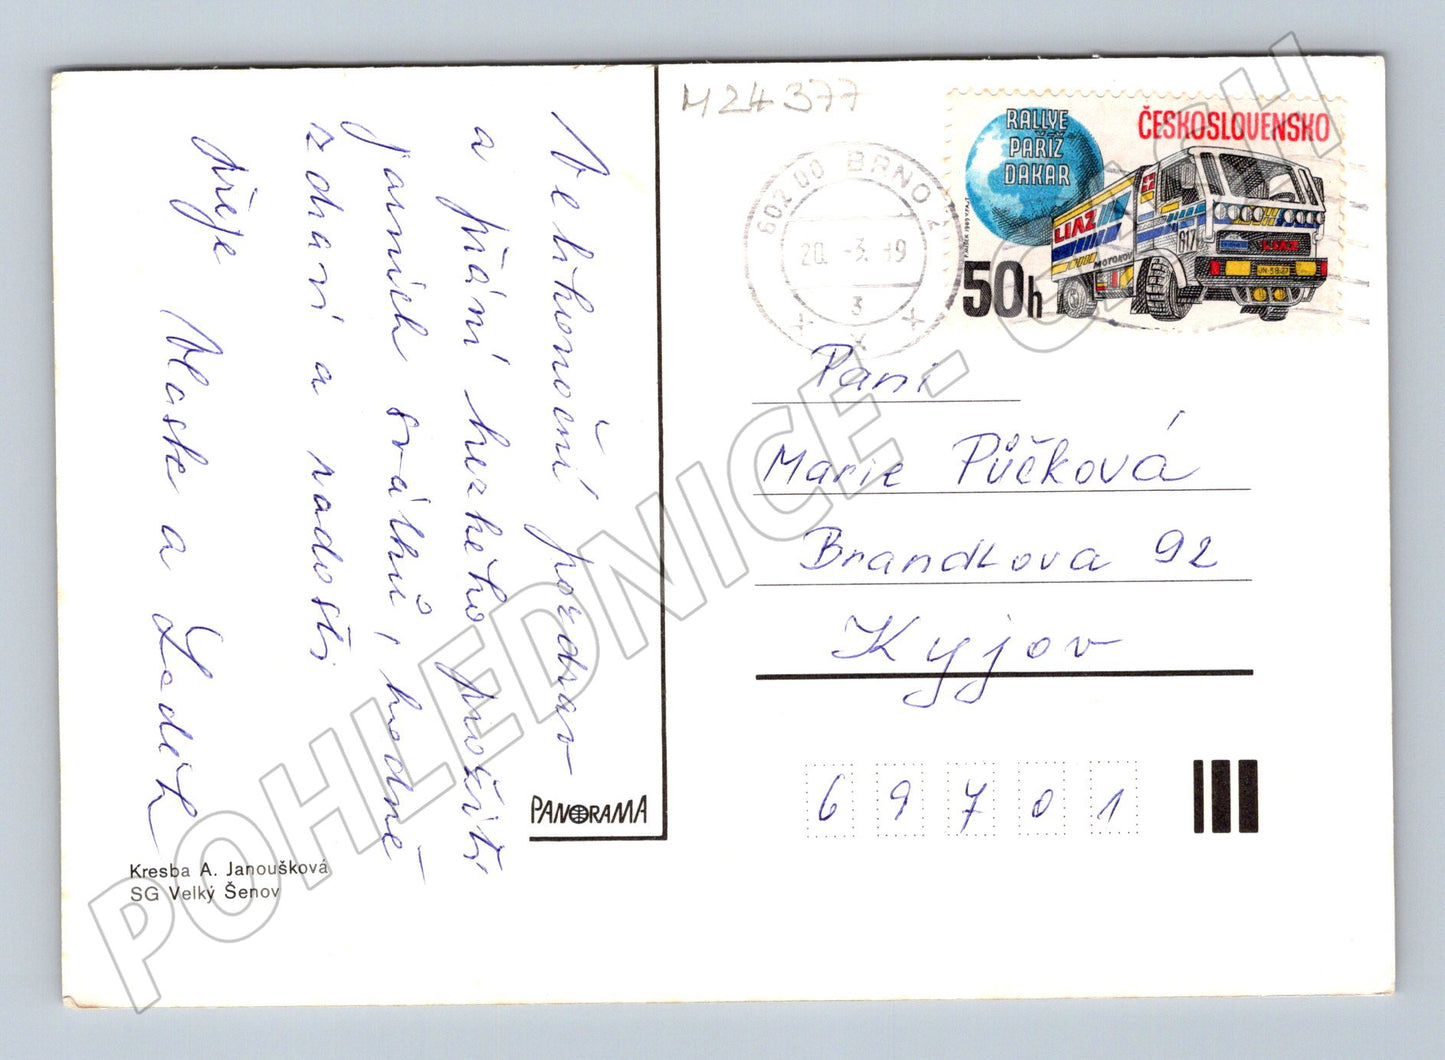 M24377
RALLYE
PAŘÍŽ
DAKAR
ČESKOSLOVENSKO
LIAZ
MOTOROV
617
LIAZ
50h
602 00 BRNO 2
20. -3. 89
3
Velikonoční pozdrav
a přání hezkého prožití
jarních svátků, hodně
zdraví a radosti
přeje Vlasta a Ladík
Paní
Marie Půčková
Brandlova 92
Kyjov
69701
PANORAMA
Kresba A. Janoušková
SG Velký Šenov
POHLEDNICE - CASH